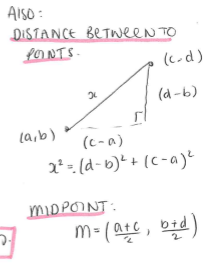 AlSO:
DISTANCE BETWEEN TO
POINTS.
(c-d)
x
(d-b)
(a,b)
(c-a)
x² = (d-b)² + (c-a)²
MIDPOINT:
m = (a+c/2, b+d/2)